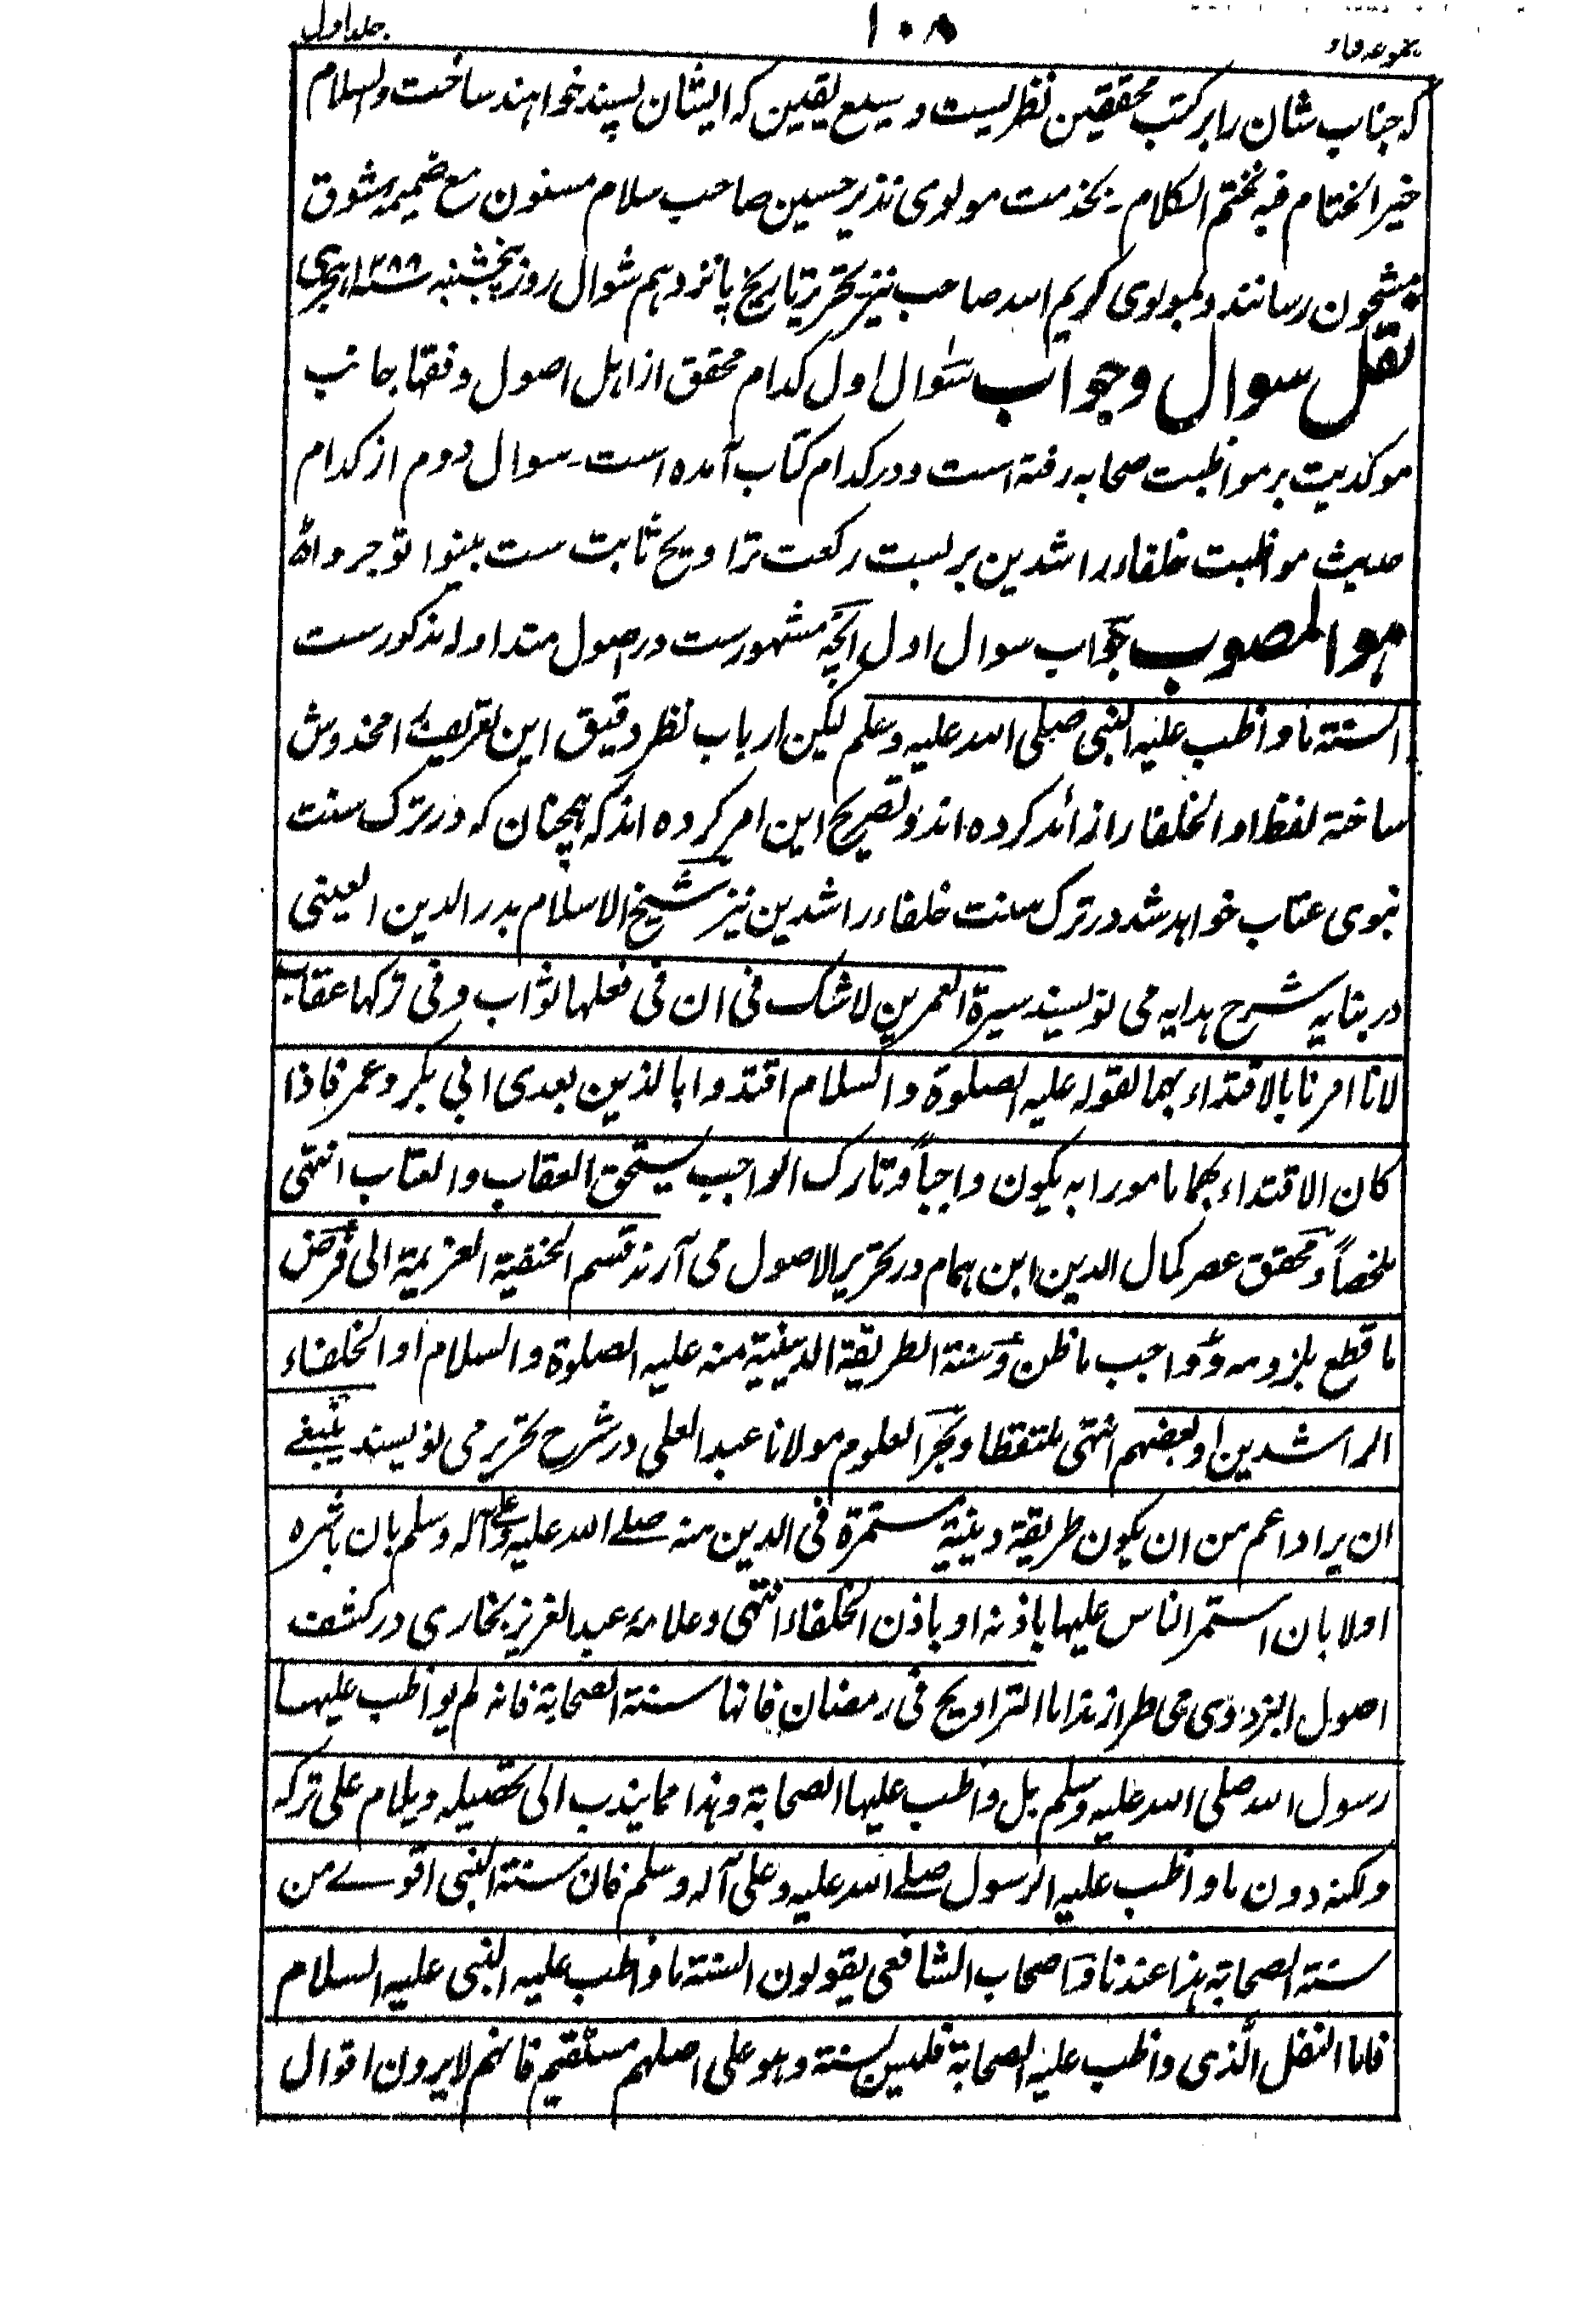 مجموعہ فتاو ۱۰۸ جلد اول
کہ جناب شان را بر کتب محققین نظریست وسیع یقین کہ ایشان پسند خواہند ساخت والسلام
خیر الختام فبہ نختم الکلام۔ بخدمت مولوی نذیر حسین صاحب سلام مسنون مع ضمیمہ شوق
مشحون رسانند و بمولوی کریم اللہ صاحب نیز تحریر تاریخ پانزدہم شوال روز پنجشنبہ ۱۲۸۸ ہجری
نقل سوال وجواب سوال اول کدام محقق از اہل اصول وفقہا بجانب
موکدیت بر مواظبت صحابہ رفتہ است ودر کدام کتاب آمدہ است۔ سوال دوم از کدام
حدیث مواظبت خلفاء راشدین بر بست رکعت تراویح ثابت ست بینوا توجروا
ہو المصوب جواب سوال اول آنچہ مشہورست در اصول متداولہ مذکورست
السنۃ ما واظب علیہ النبی صلی اللہ علیہ وسلم لیکن ارباب نظر دقیق این تعریف را مخدوش
ساختہ لفظ او الخلفا را زائد کردہ اند وتصریح این امر کردہ اند کہ ہمچنان کہ در ترک سنت
نبوی عتاب خواہد شد در ترک سنت خلفاء راشدین نیز شیخ الاسلام بدر الدین العینی
در بنایہ شرح ہدایہ می نویسند سیرۃ العمرین لا شک فی ان فی فعلہا ثواب وفی ترکہا عقاب
لانا امرنا بالاقتداء بہما لقولہ علیہ الصلوۃ والسلام اقتدوا بالذین بعدی ابی بکر وعمر فاذا
کان الاقتداء بہما مامورا بہ یکون واجباً وتارک الواجب یستحق العقاب والعتاب انتہی
ملخصاً ومحقق عصر کمال الدین ابن ہمام در تحریر الاصول می آرند قسم الحنفیۃ العزیمۃ الی فرض
ما قطع بلزومہ وواجب ما ظن وسنۃ الطریقۃ الدینیۃ منہ علیہ الصلوۃ والسلام او الخلفاء
الراشدین او بعضہم انتہی ملتقطا وبحر العلوم مولانا عبد العلی در شرح تحریر می نویسند ینبغے
ان یراد اعم من ان یکون طریقۃ دینیۃ مستمرۃ فی الدین منہ صلے اللہ علیہ وعلی آلہ وسلم بان باشرہ
اولا بان استمر الناس علیہا باذنہ او باذن الخلفاء انتہی وعلامہ عبد العزیز بخاری در کشف
اصول البزدوی می طرازند اما التراویح فی رمضان فانہا سنۃ الصحابۃ فانہ لم یواظب علیہا
رسول اللہ صلی اللہ علیہ وسلم بل واظب علیہا الصحابۃ وہذا مما یندب الی تحصیلہ ویلام علی ترکہ
ولکنہ دون ما واظب علیہ الرسول صلے اللہ علیہ وعلی آلہ وسلم فان سنۃ النبی اقوے من
سنۃ الصحابۃ ہذا عندنا واصحاب الشافعی یقولون السنۃ ما واظب علیہ النبی علیہ السلام
فاما النفل الذی واظب علیہ الصحابۃ فلیس بسنۃ وہو علی اصلہم مستقیم فانہم لا یرون اقوال